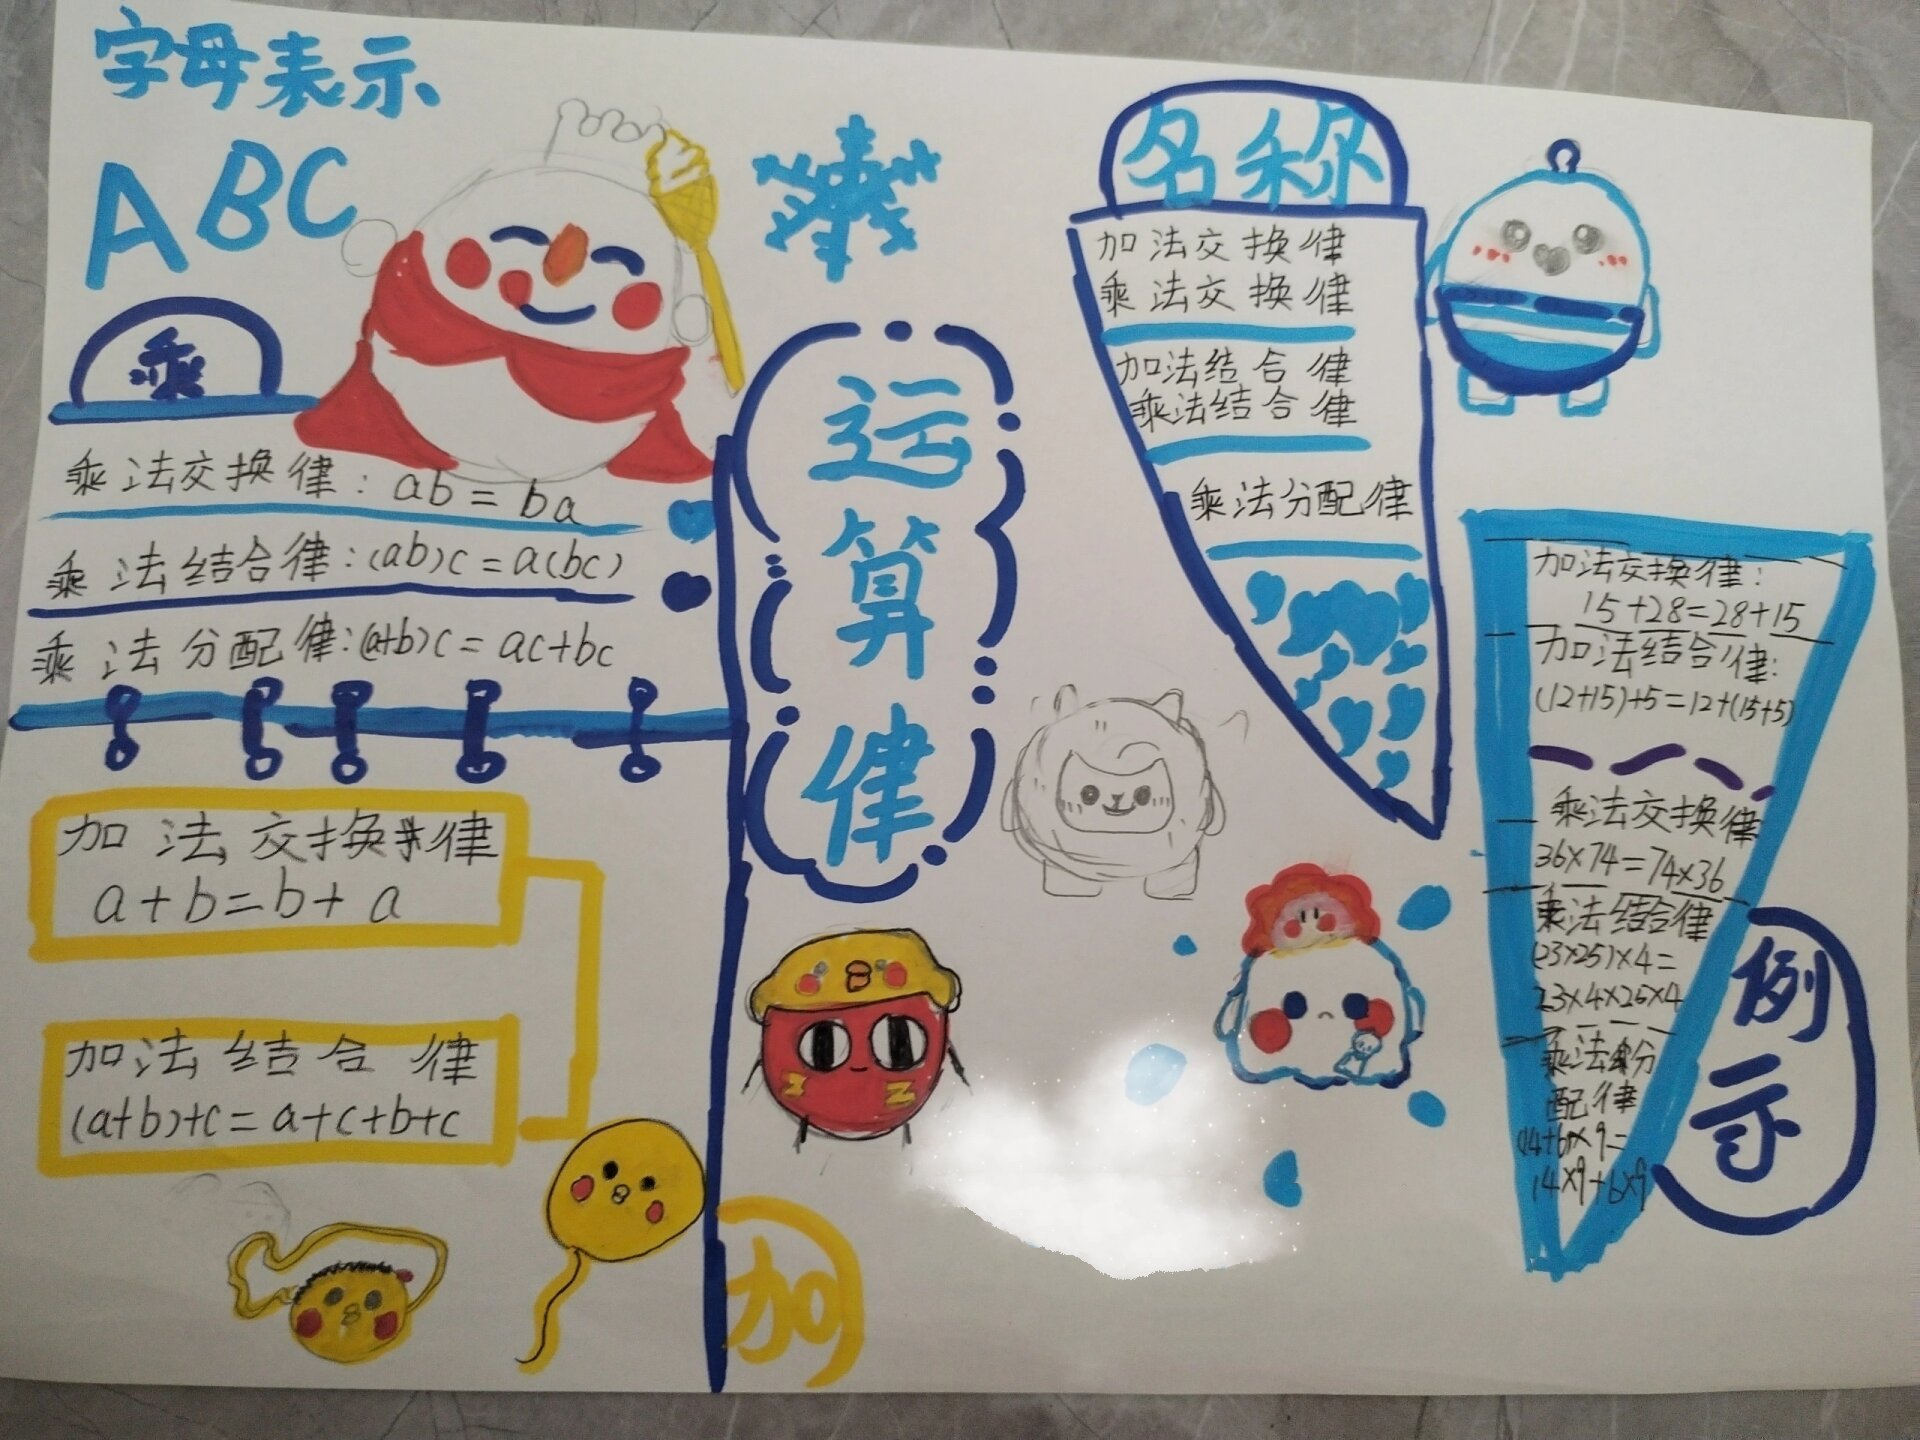 字母表示
ABC
乘
乘法交换律：ab=ba
乘法结合律：(ab)c=a(bc)
乘法分配律：(a+b)c=ac+bc
加法交换律
a+b=b+a
加法结合律
(a+b)+c=a+c+b+c
加
运算律
名称
加法交换律
乘法交换律
加法结合律
乘法结合律
乘法分配律
例示
加法交换律：
15+28=28+15
加法结合律：
(12+15)+5=12+(15+5)
乘法交换律
36×74=74×36
乘法结合律
(23×25)×4=
23×4×25×4
乘法分
配律
(14+6)×9=
14×9+6×9